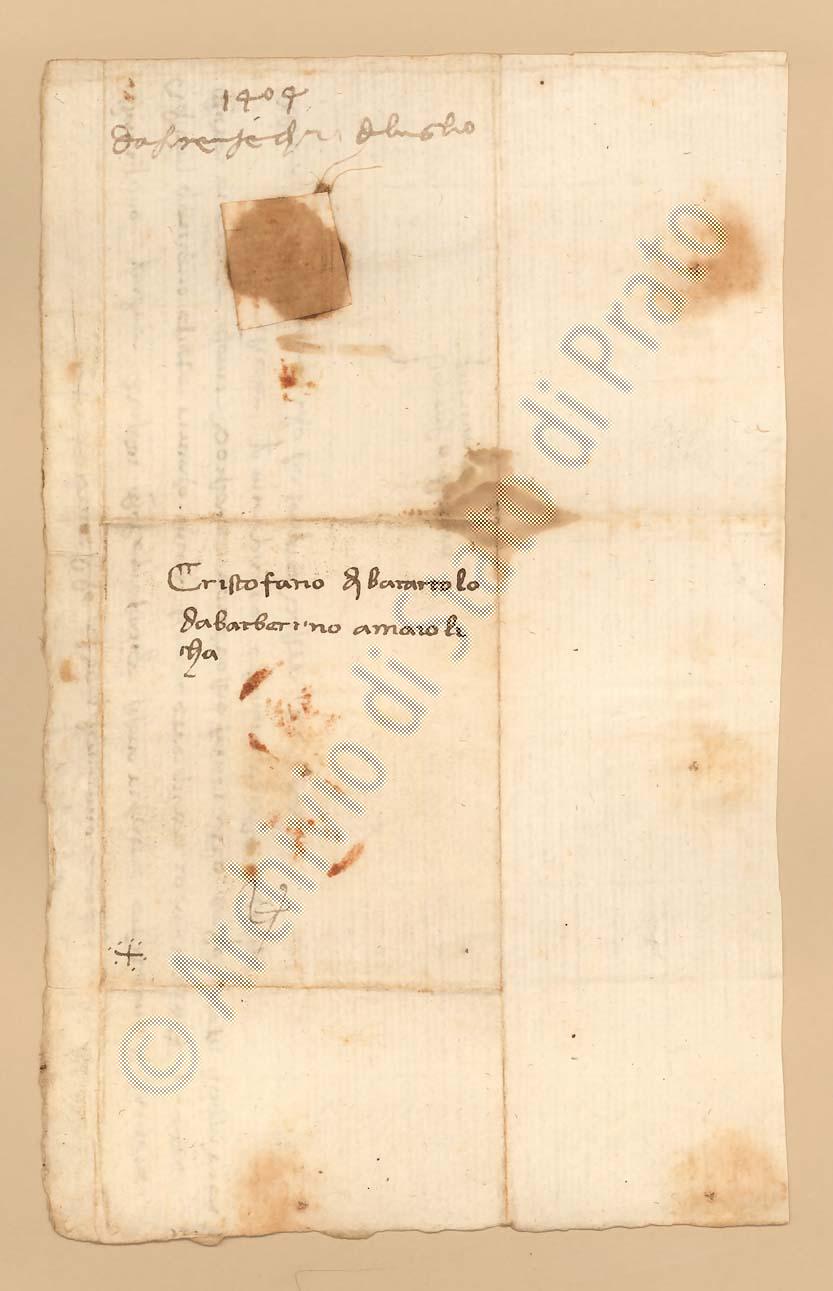 1404
da firenze a dì di luglio
Cristofano di bacarttolo
da barberino amaioli
cha
© Archivio di Stato di Prato